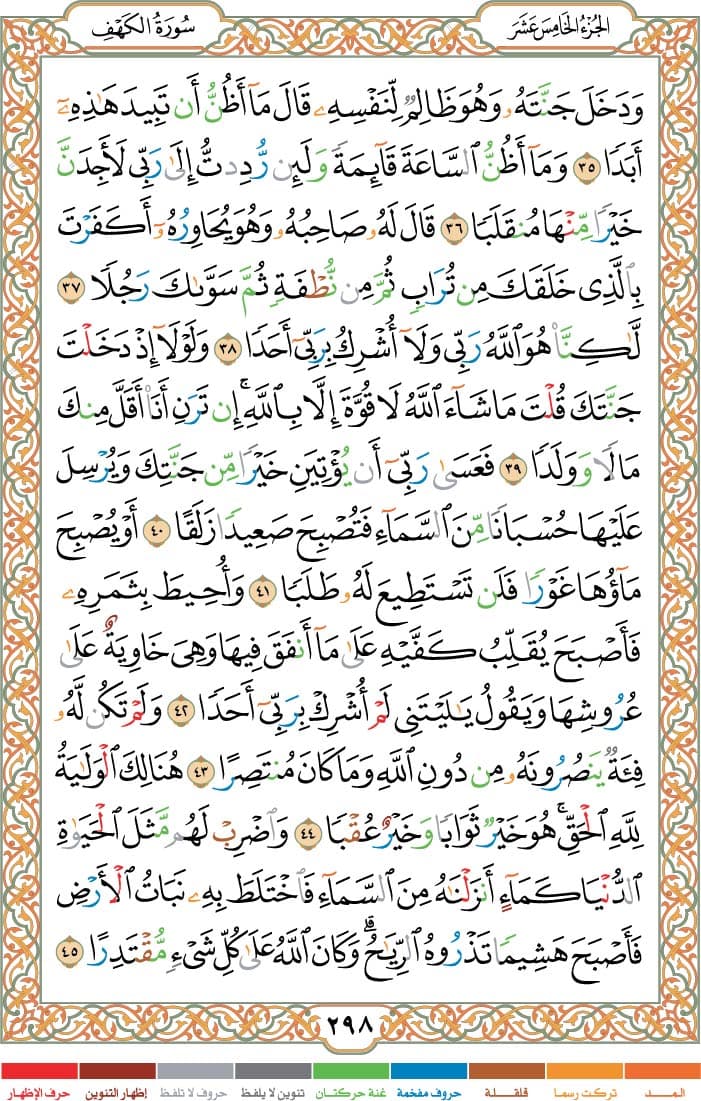 الجزء الخامس عشر
سورة الكهف
وَدَخَلَ جَنَّتَهُۥ وَهُوَ ظَالِمٌ لِّنَفْسِهِۦ قَالَ مَآ أَظُنُّ أَن تَبِيدَ هَٰذِهِۦٓ
أَبَدًا ٣٥ وَمَآ أَظُنُّ ٱلسَّاعَةَ قَآئِمَةً وَلَئِن رُّدِدتُّ إِلَىٰ رَبِّى لَأَجِدَنَّ
خَيْرًا مِّنْهَا مُنقَلَبًا ٣٦ قَالَ لَهُۥ صَاحِبُهُۥ وَهُوَ يُحَاوِرُهُۥٓ أَكَفَرْتَ
بِٱلَّذِى خَلَقَكَ مِن تُرَابٍ ثُمَّ مِن نُّطْفَةٍ ثُمَّ سَوَّىٰكَ رَجُلًا ٣٧
لَّٰكِنَّا۠ هُوَ ٱللَّهُ رَبِّى وَلَآ أُشْرِكُ بِرَبِّىٓ أَحَدًا ٣٨ وَلَوْلَآ إِذْ دَخَلْتَ
جَنَّتَكَ قُلْتَ مَا شَآءَ ٱللَّهُ لَا قُوَّةَ إِلَّا بِٱللَّهِ ۚ إِن تَرَنِ أَنَا۠ أَقَلَّ مِنكَ
مَالًا وَوَلَدًا ٣٩ فَعَسَىٰ رَبِّىٓ أَن يُؤْتِيَنِ خَيْرًا مِّن جَنَّتِكَ وَيُرْسِلَ
عَلَيْهَا حُسْبَانًا مِّنَ ٱلسَّمَآءِ فَتُصْبِحَ صَعِيدًا زَلَقًا ٤٠ أَوْ يُصْبِحَ
مَآؤُهَا غَوْرًا فَلَن تَسْتَطِيعَ لَهُۥ طَلَبًا ٤١ وَأُحِيطَ بِثَمَرِهِۦ
فَأَصْبَحَ يُقَلِّبُ كَفَّيْهِ عَلَىٰ مَآ أَنفَقَ فِيهَا وَهِىَ خَاوِيَةٌ عَلَىٰ
عُرُوشِهَا وَيَقُولُ يَٰلَيْتَنِى لَمْ أُشْرِكْ بِرَبِّىٓ أَحَدًا ٤٢ وَلَمْ تَكُن لَّهُۥ
فِئَةٌ يَنصُرُونَهُۥ مِن دُونِ ٱللَّهِ وَمَا كَانَ مُنتَصِرًا ٤٣ هُنَالِكَ ٱلْوَلَٰيَةُ
لِلَّهِ ٱلْحَقِّ ۚ هُوَ خَيْرٌ ثَوَابًا وَخَيْرٌ عُقْبًا ٤٤ وَٱضْرِبْ لَهُم مَّثَلَ ٱلْحَيَوٰةِ
ٱلدُّنْيَا كَمَآءٍ أَنزَلْنَٰهُ مِنَ ٱلسَّمَآءِ فَٱخْتَلَطَ بِهِۦ نَبَاتُ ٱلْأَرْضِ
فَأَصْبَحَ هَشِيمًا تَذْرُوهُ ٱلرِّيَٰحُ ۗ وَكَانَ ٱللَّهُ عَلَىٰ كُلِّ شَىْءٍ مُّقْتَدِرًا ٤٥
٢٩٨
المـــد تركت رسما قلقـــلة حروف مفخمة غنة حركتـان تنوين لا يلفظ حروف لا تلفظ إظهار التنوين حرف الإظهار